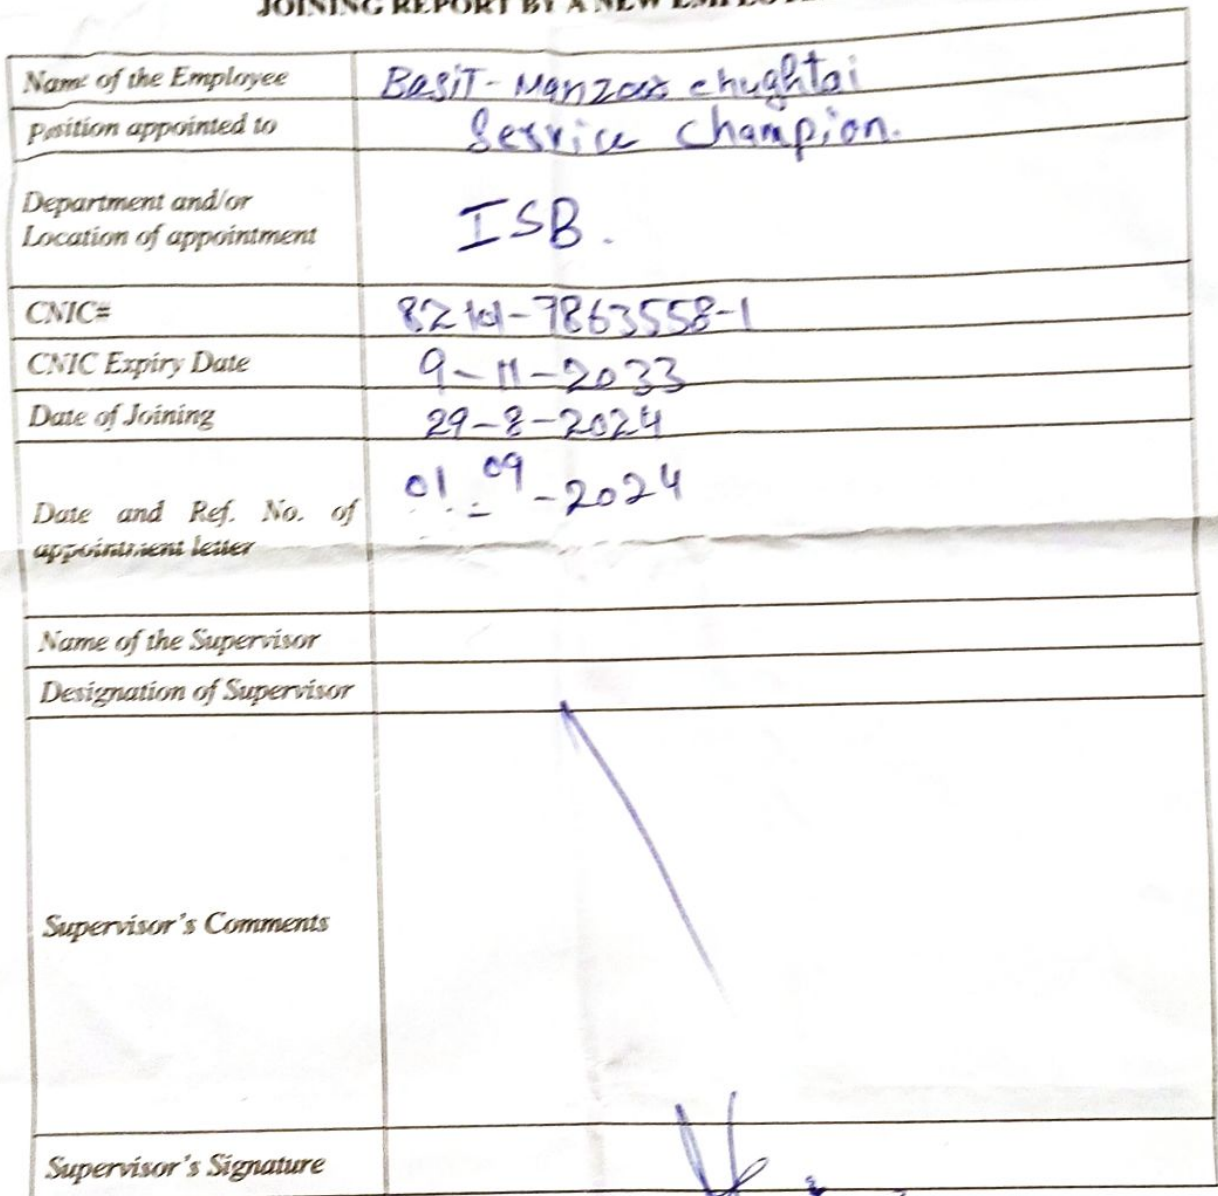 JOINING REPORT BY A NEW
Name of the Employee BasiT - Manzoor chughtai
Position appointed to Service Champion.
Department and/or
Location of appointment ISB.
CNIC# -7863558-1
CNIC Expiry Date 9-11-2033
Date of Joining 29-8-2024
Date and Ref. No. of 01-09-2024
appointment letter
Name of the Supervisor
Designation of Supervisor
Supervisor's Comments
Supervisor's Signature